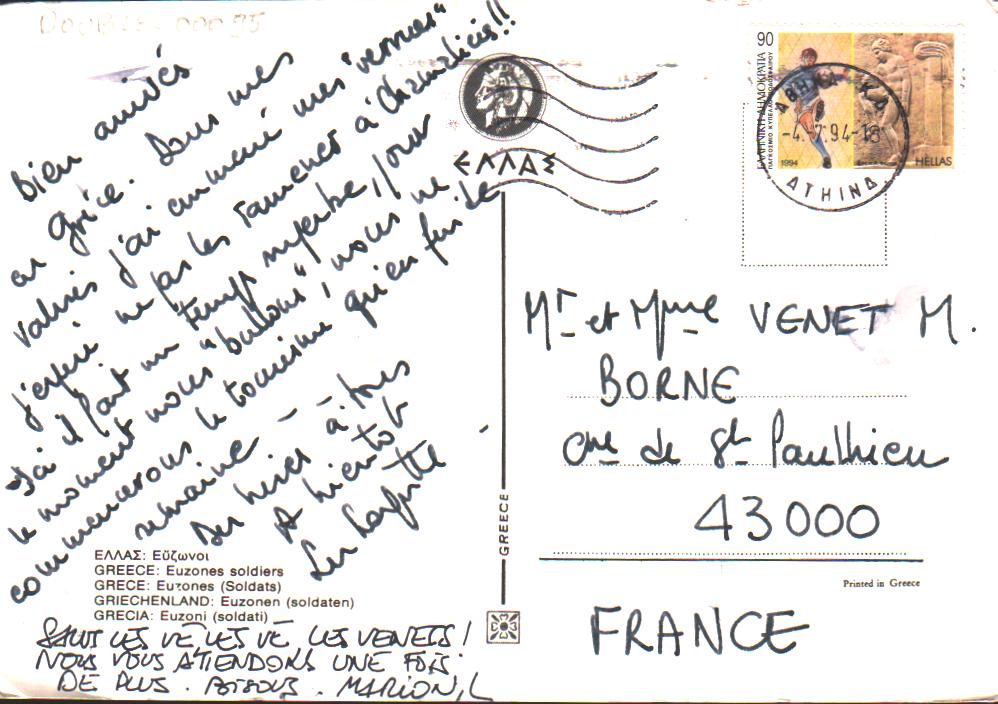 DOUBLES 00095
Bien arrivés
en Grèce. Dans mes
valises j'ai emmené mes "verrues"
j'espère ne pas les ramener à !!
Ici il fait un temps superbe, pour
le moment nous "bullons", nous ne
commencerons le tourisme qu'en fin de
semaine –
Des bises à tous
A bientôt
Les
ΕΛΛΑΣ: Εὔζωνοι
GREECE: Euzones soldiers
GRECE: Euzones (Soldats)
GRIECHENLAND: Euzonen (soldaten)
GRECIA: Euzoni (soldati)
SALUT LES VÉ LES VÉ LES VENETS!
NOUS VOUS ATTENDONS UNE FOIS
DE PLUS. BISOUS. MARION, L
ΕΛΛΑΣ
GREECE
90
ΕΛΛΗΝΙΚΗ ΔΗΜΟΚΡΑΤΙΑ
ΠΑΓΚΟΣΜΙΟ ΚΥΠΕΛΛΟ ΠΟΔΟΣΦΑΙΡΟΥ
1994
HELLAS
ΑΘΗΝΑ Κ.Δ.
-4.-7.94-18
ATHINA
Mr et Mme VENET M.
BORNE
cne de St Paulhien
43000
FRANCE
Printed in Greece